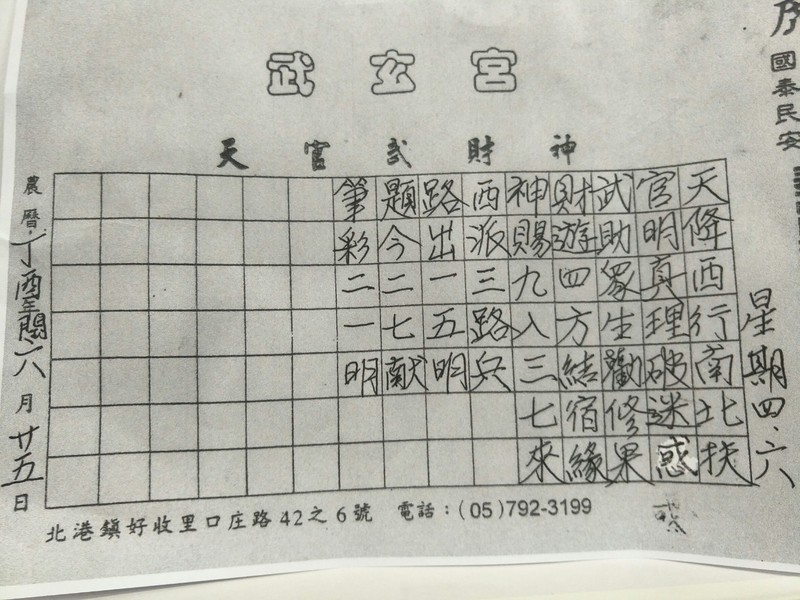 武玄宮
天官武財神
國泰民安
星期四、六
天降西行南北扶
官明真理破迷感
武助眾生勸修果
財遊四方結宿緣
神賜九入三七來
西派三路兵
路出一五明
題今二七献
筆彩二一明
農曆丁酉年閏六月廿五日
北港鎮好收里口庄路42之6號 電話：(05)792-3199